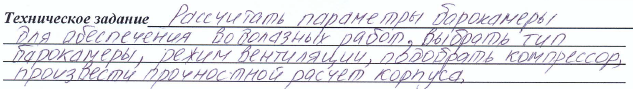 Техническое задание Рассчитать параметры барокамеры
для обеспечения водолазных работ, выбрать тип
барокамеры, режим вентиляции, подобрать компрессор,
произвести прочностной расчет корпуса.